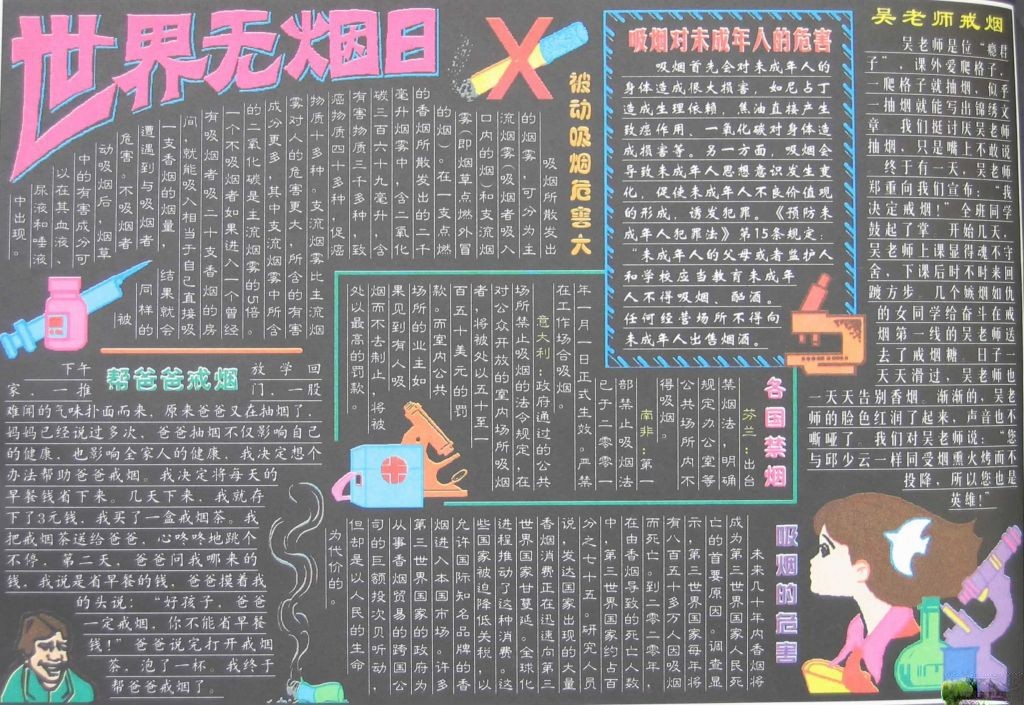 世界无烟日
被动吸烟危害大
吸烟所散发出
的烟雾，可分为主
流烟雾（吸烟者吸入
口内的烟）和支流烟
雾（即烟草点燃外冒
的烟）。在一支点燃
的香烟所散发出的二千
毫升烟雾中，含二氧化
碳三百六十九毫升，含
有害物质三千多种，致
癌物质四十多种，促癌
物质十多种。支流烟雾比主流烟
雾对人的危害更大，所含的有害
成分更多，其中支流烟雾中所含
的二氧化碳是主流烟雾的5倍。
一个不吸烟者如果进入一个曾经
有吸烟者吸二十支香烟的房
间，就能吸入相当于自己直接吸
一支香烟的烟量，结果就会
遭遇到与吸烟者同样的
危害。不吸烟者被
动吸烟后，烟草
中的有害成分可
以在其血液、
尿液和唾液
中出现。
吸烟对未成年人的危害
吸烟首先会对未成年人的
身体造成很大损害，如尼古丁
造成生理依赖，焦油直接产生
致癌作用、一氧化碳对身体造
成损害等。另一方面，吸烟会
导致未成年人思想意识发生变
化，促使未成年人不良价值观
的形成，诱发犯罪。《预防未
成年人犯罪法》第15条规定：
“未成年人的父母或者监护人
和学校应当教育未成年
人不得吸烟、酗酒。
任何经营场所不得向
未成年人出售烟酒。
吴老师戒烟
吴老师是位“瘾君
子”，课外爱爬格子，
爬格子就抽烟，似乎
一抽烟就能写出锦绣文
章。我们挺讨厌吴老师
抽烟，只是嘴上不敢说
终于有一天，吴老师
郑重向我们宣布：“我
决定戒烟！”全班同学
鼓起了掌。开始几天，
吴老师上课显得魂不守
舍，下课后时不时来回
踱方步。几个嫉烟如仇
的女同学给奋斗在戒
烟第一线的吴老师送
去了戒烟糖。日子一
天天滑过，吴老师也
一天天告别香烟。渐渐的，吴老
师的脸色红润了起来，声音也不
嘶哑了。我们对吴老师说：“您
与邱少云一样同受烟熏火烤而不
投降，所以您也是
英雄！”
帮爸爸戒烟
下午放学回
家，一推门，一股
难闻的气味扑面而来，原来爸爸又在抽烟了。
妈妈已经说过多次，爸爸抽烟不仅影响自己
的健康，也影响全家人的健康，我决定想个
办法帮助爸爸戒烟。我决定将每天的
早餐钱省下来。几天下来，我就存
下了3元钱，我买了一盒戒烟茶。我
把戒烟茶送给爸爸，心咚咚地跳个
不停。第二天，爸爸问我哪来的
钱，我说是省早餐的钱，爸爸摸着我
的头说：“好孩子，爸爸
一定戒烟，你不能省早餐
钱！”爸爸说完打开戒烟
茶，泡了一杯。我终于
帮爸爸戒烟了。
各国禁烟
芬兰：出台
禁烟法，明确
规定办公室等
公共场所内不
得吸烟。
南非：第一
部禁止吸烟法
已于二零零一
年一月一日正式生效。严禁
在工作场合吸烟。
意大利：政府通过的公共
场所禁止吸烟的法令规定，在
对公众开放的室内场所吸烟
者，将被处以五十至一
百五十美元的罚
款。而室内公共
场所的业主如
果见到有人吸
烟而不去制止，将被
处以最高的罚款。
吸烟的危害
未来几十年内香烟将
成为第三世界国家人民死
亡的首要原因。调查显
示，第三世界国家每年将
有八百五十多万人因吸烟
而死亡。到二零二零年，
在由香烟导致的死亡人数
中，第三世界国家约占
分之七十五。研究人员
说，发达国家出现的大量
香烟消费正在迅速向第三
世界国家蔓延。全球化
进程推动了这种消费。这
些国家被迫降低关税，以
允许国际知名品牌的香
烟进入本国市场。许多
第三世界国家的政府为
从事香烟贸易的跨国公
司的巨额投次贝听动，
但却是以人民的生命
为代价的。